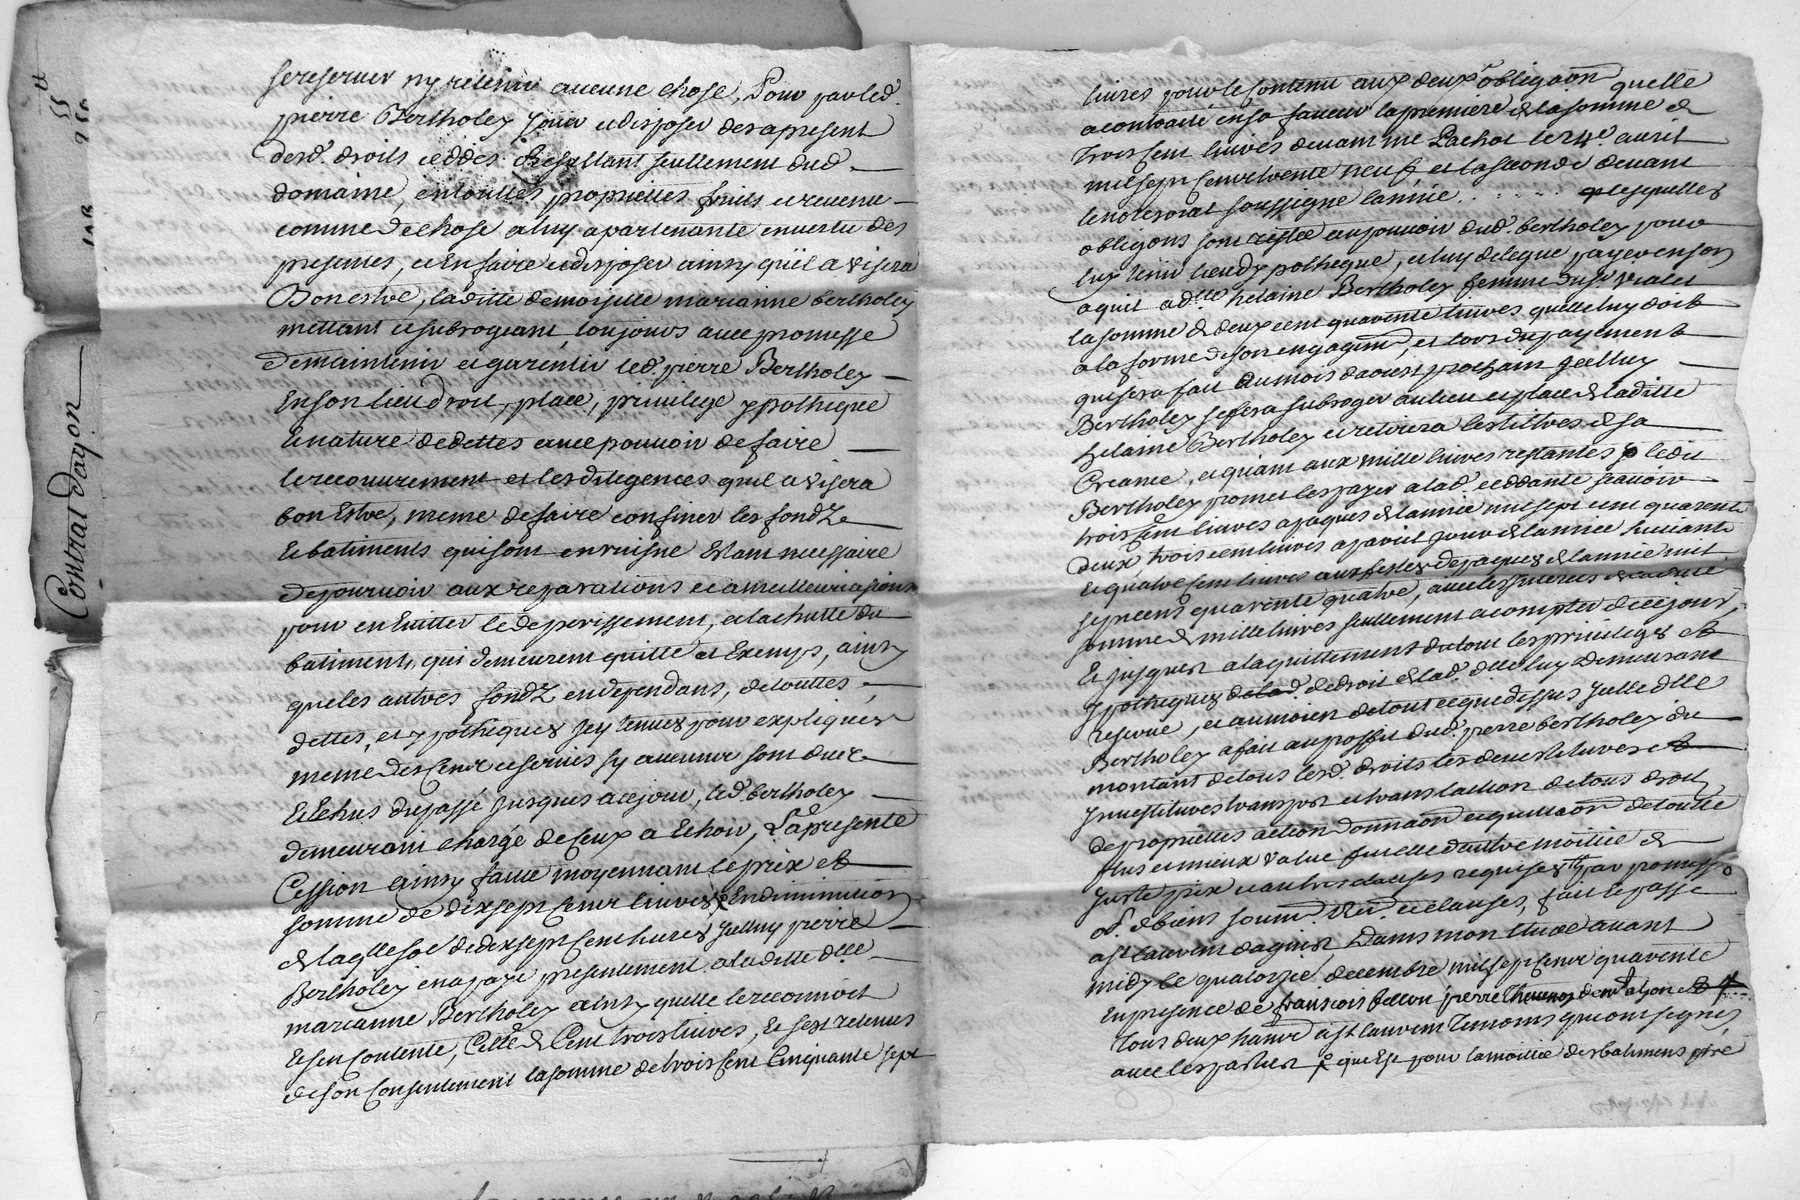 se reserver ny retenir aucune chose, Pour par led.
pierre Bertholey jouir et disposer des a present
desd. droits ceddes Resultant seullement dud
domaine, en touttes proprietes fruits et revenu
comme de chose a luy apartenante en vertu des
presentes, et en faire et disposer ainsy qu'il avisera
Bon estre, laditte demoiselle marianne bertholey
mettant et subrogeant toujours avec promesse
de maintenir et garentir led. pierre Bertholey
En son lieu droit, place, privilege ypotheque
Et nature de dettes avec pouvoir de faire
le recouvrement et les diligences qu'il avisera
bon Estre, meme de faire confiner les fondz
Et batiments qui sont en ruisne Estant necessaire
de pourvoir aux reparations et ameilleurissions
pour en Eviter le deperissement, et la chutte du
batiment, qui demeurent quitte et Exempt, ainsy
que les autres fondz en dependans, de touttes
dettes, et ypotheques jey tenues pour expliquées
meme des Cens et servis sy aucuns sont dues
Et Echus du passé jusques a ce jour, led. bertholey
demeurant chargé de ceux a Echoir, La presente
Cession ainsy faitte moyennant le prix et
somme de dix sept Cent livres En diminution
de laqlle so.e de dix sept Cent livres jcelluy pierre
Bertholey en a payé presentement a laditte dlle
marianne Bertholey ainsy qu'elle le reconnoit
Et s'en Contente, Celle de Cent trois livres, Et s'est retenus
de son Consentement la somme de trois Cent Cinquante sept
livres pour le Contenu aux deux obligaon qu'elle
a contracté en sa faveur la premiere de la somme de
trois Cent livres devant me Pachot le avril
mil sept Cent trente neuf et la seconde devant
le note roial soussigné l'année . . . lesquelles
obligons sont restée au pouvoir dud. bertholey pour
luy tenir lieu dypotheque, et luy delegue payer en son
aquit a dlle helaine Bertholey femme du sr Vialet
la somme de deux cent quarente livres qu'elle luy doit
a la forme de son engagemt, et lors du payement
qui sera fait du mois daoust prochain jcelluy
Bertholey se fera subroger au lieu et place de laditte
helaine Bertholey et retirera les tittres de sa
Creance, et quant aux mille livres restantes ledit
Bertholey promet les payer a lad. ceddante scavoir
trois Cent livres a paques de l'année mil sept cent quarente
deux trois cent livres a pareil jour de l'année suivante
Et quatre Cent livres aux festes de paques de l'année mil
sept cens quarente quatre, avec les jnterets de laditte
somme de mille livres seullement a compter de ce jour,
Et jusques a l'aquittement du tout les privileges et
ypotheques de droit de lad. dlle luy demeurant
reservé, et au moien de tout ce que dessus jcelle dlle
Bertholey a fait au proffit dud. pierre bertholey du
montant de tous lesd. droits les devestitures et
jnvestitures transport et translation de tous droit
de proprietés action donnaon et quittaon de toutte
plus et mieux value fut elle d'autre moittié de
juste prix et autres clauses requises par promesse
obl. de biens soum. et clauses, fait et passé
a st Laurent dagnier, Dans mon Etude avant
midy le quatorze decembre mil sept Cent quarente
En presence de francois pierre Thevenot
tous deux st Laurent temoins qui ont signés
avec les parties